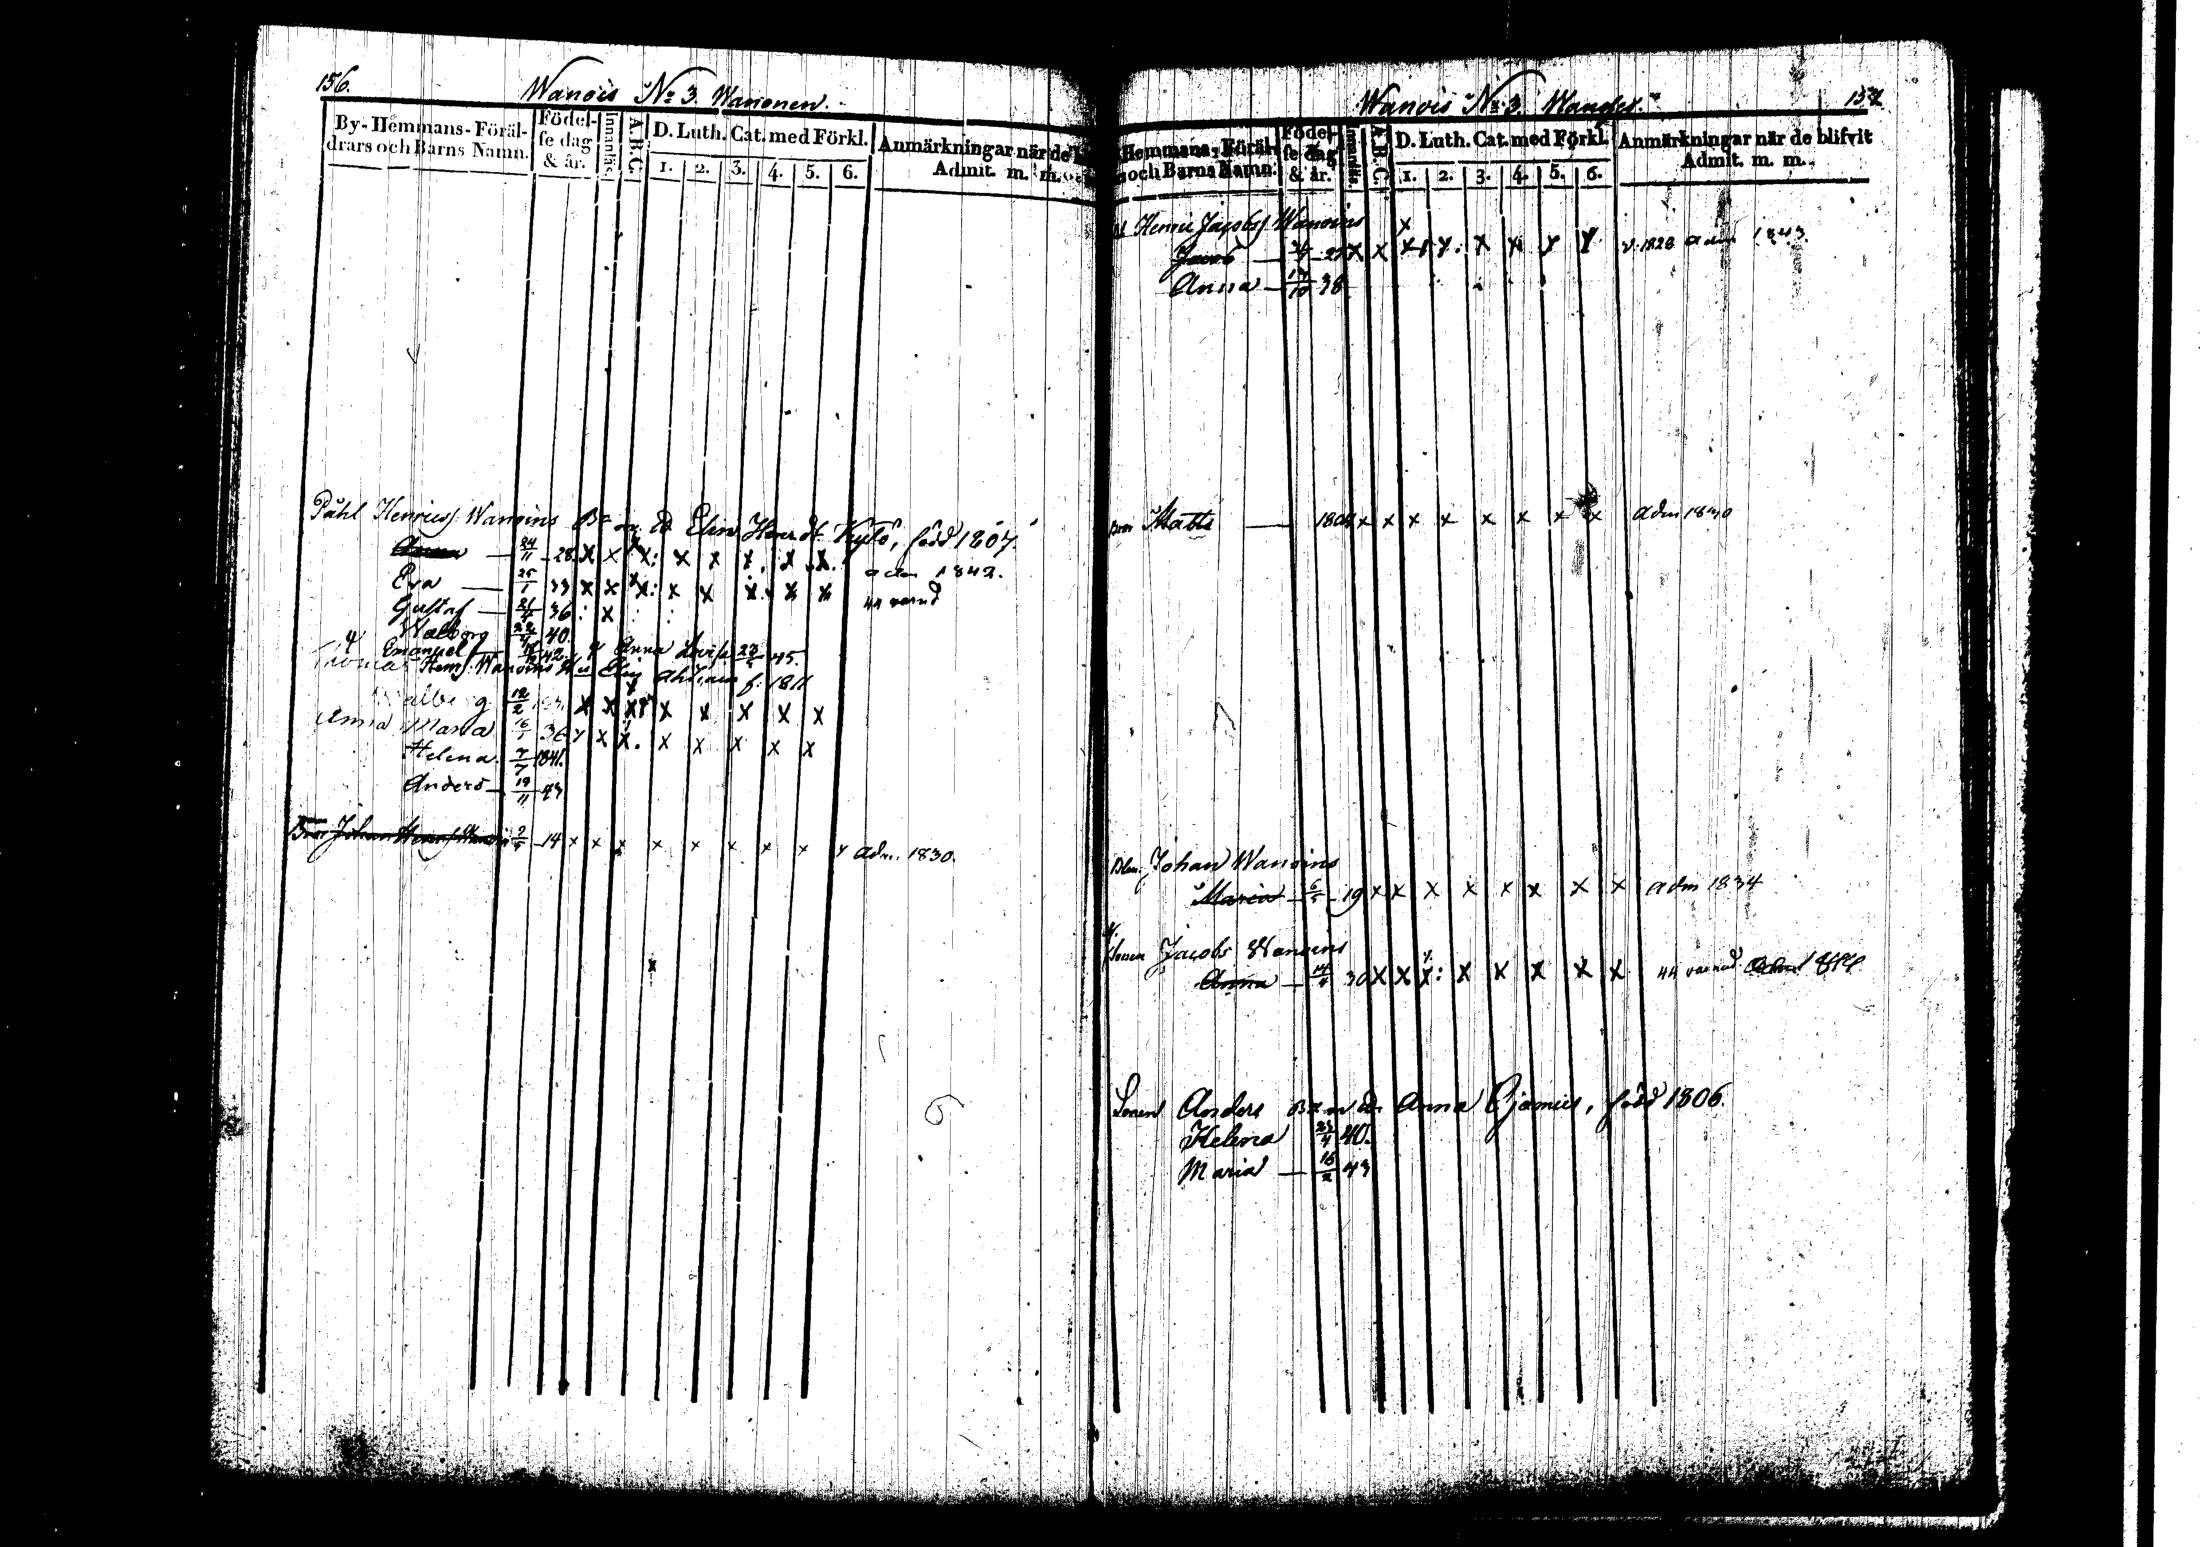 156.
Wanois No 3 Wanonen.
By- Hemmans- Föräl-
drars och Barns Namn.
Födel-
se dag
& år.
Innanläs.
A.B.C.
D. Luth. Cat. med Förkl.
1. 2. 3. 4. 5. 6.
Anmärkningar när de
Admit. m. m.
Påhl Henrics Wanoins född 1807.
Anna — 24/11 - 28 x x x: x x x. x x. adm 1842.
Eva — 25/1 33 x x x: x x x. x x 44 varnd
Gustaf — 21/4 36 : x
Walborg 22/4 40
Emanuel 42. Anna Lovisa 23/5 45.
Thomas Henrs. Wanoins f. 1811
Walborg 12/2 x x x x x x x x
Anna Maria 16/1 36 x x x. x x x x x
Helena. 7/7 1841.
Anders — 19/11 43
Bror Johan 2/5 - 14 x x x x x x x x x adm. 1830.
Wanois No 3. 157
Hemmans- Föräl-
och Barns Namn.
Födel-
se dag
& år.
Innanläs.
A.B.C.
D. Luth. Cat. med Förkl.
1. 2. 3. 4. 5. 6.
Anmärkningar när de blifvit
Admit. m. m.
Henric Jacobs Wanoins x
Jacob — 27 x x x x x x x 1828 adm 1843.
Anna — 38
Bror Matts — x x x x x x x x adm 1830
Johan Wanoins
Maria — 6/5 - 19 x x x x x x x x adm 1834
Sonen Jacobs Wanoins
Anna — 30 x x x: x x x x x 44 varnd
Sonen Anders Anna född 1806.
Helena 23/4 40.
Maria — 16/2 43